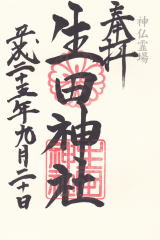 奉拝
神仏霊場
生田神社
平成二十五年九月二十日